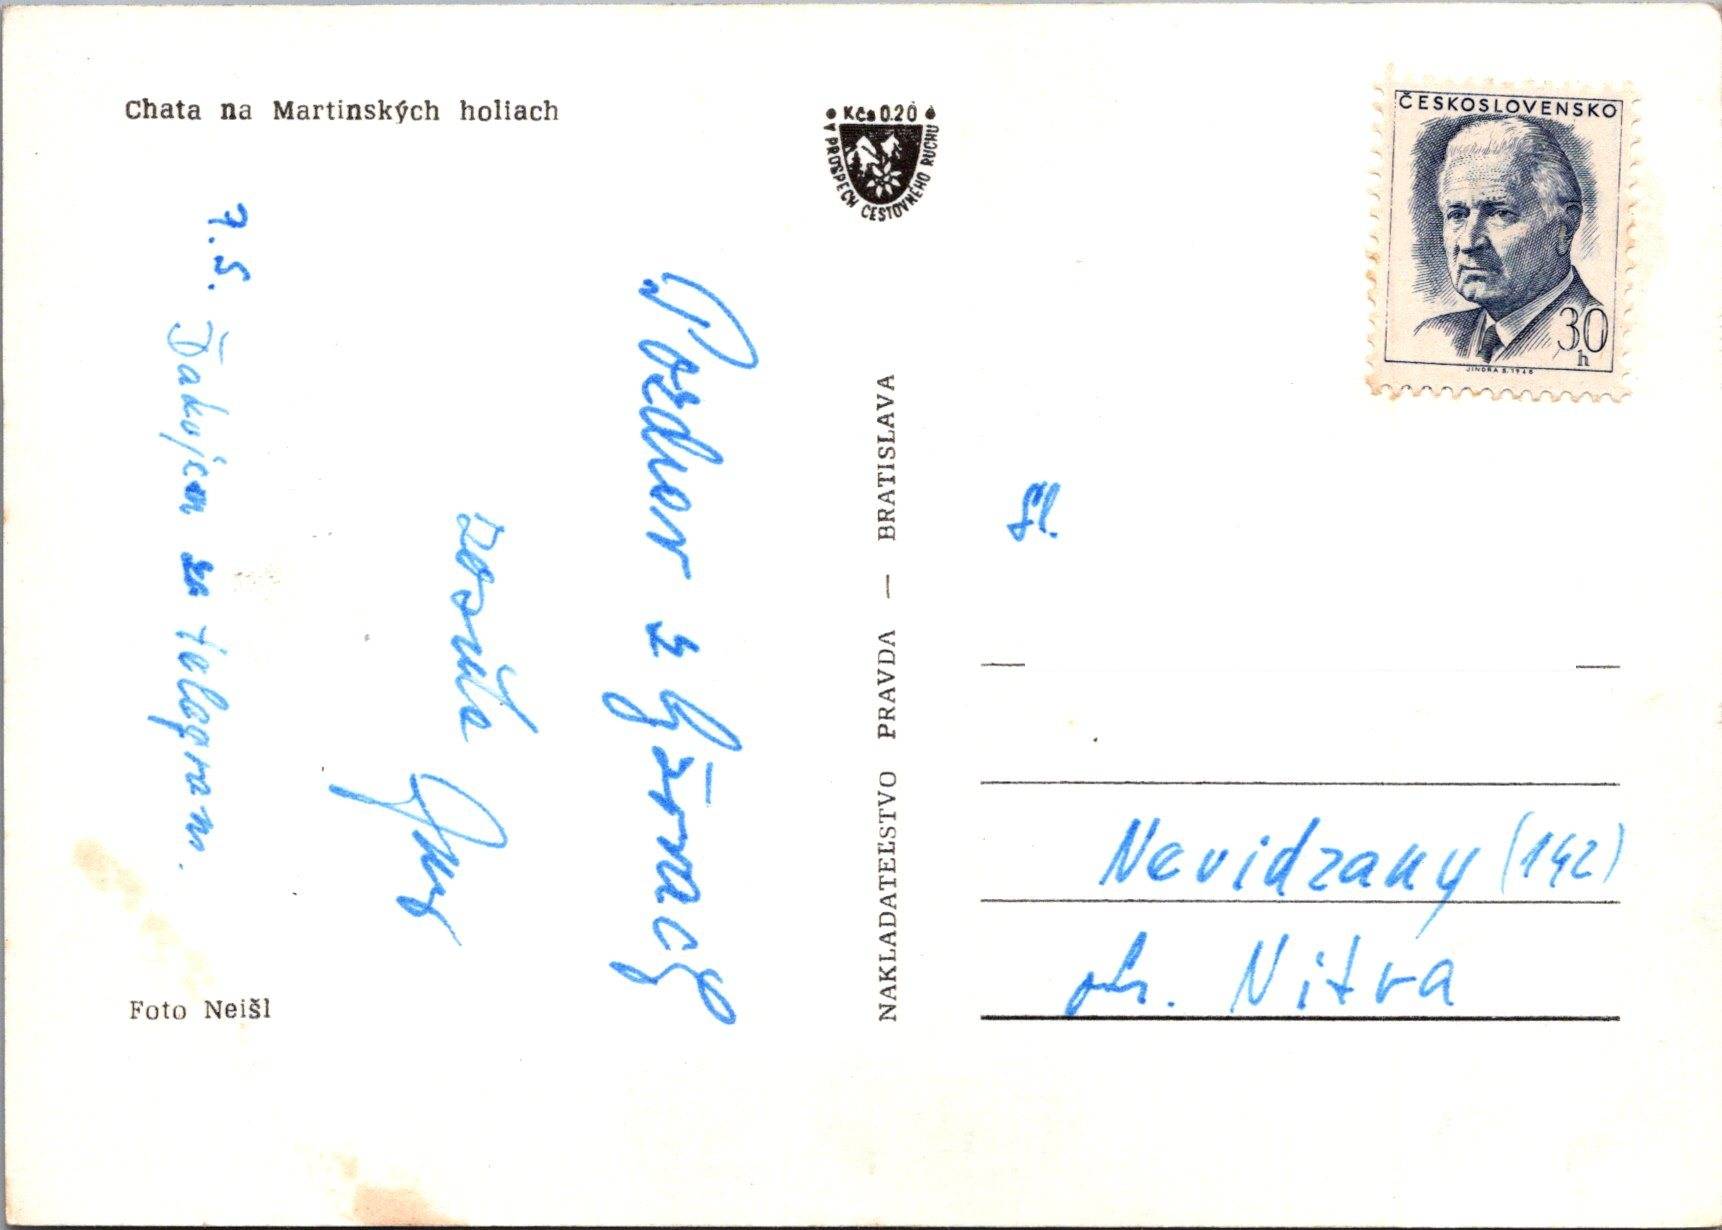 Chata na Martinských holiach
Kčs 0.20
V PROSPECH CESTOVNÉHO RUCHU
ČESKOSLOVENSKO
30
h
JINDRA S. 1968
7.5. Ďakujem za telegram.
Pozdrav z
NAKLADATEĽSTVO PRAVDA — BRATISLAVA
Sl.
Nevidzany (142)
o. Nitra
Foto Neišl